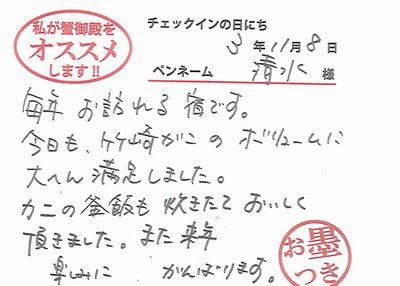 私が蟹御殿を
オススメ
します!!
チェックインの日にち
3年11月8日
ペンネーム 清水 様
毎年 お訪れる 宿です。
今日も、竹崎がにの ボリュームに
大へん 満足しました。
カニの釜飯も 炊きたて おいしく
頂きました。また来年
楽しみに がんばります。
お墨
つき